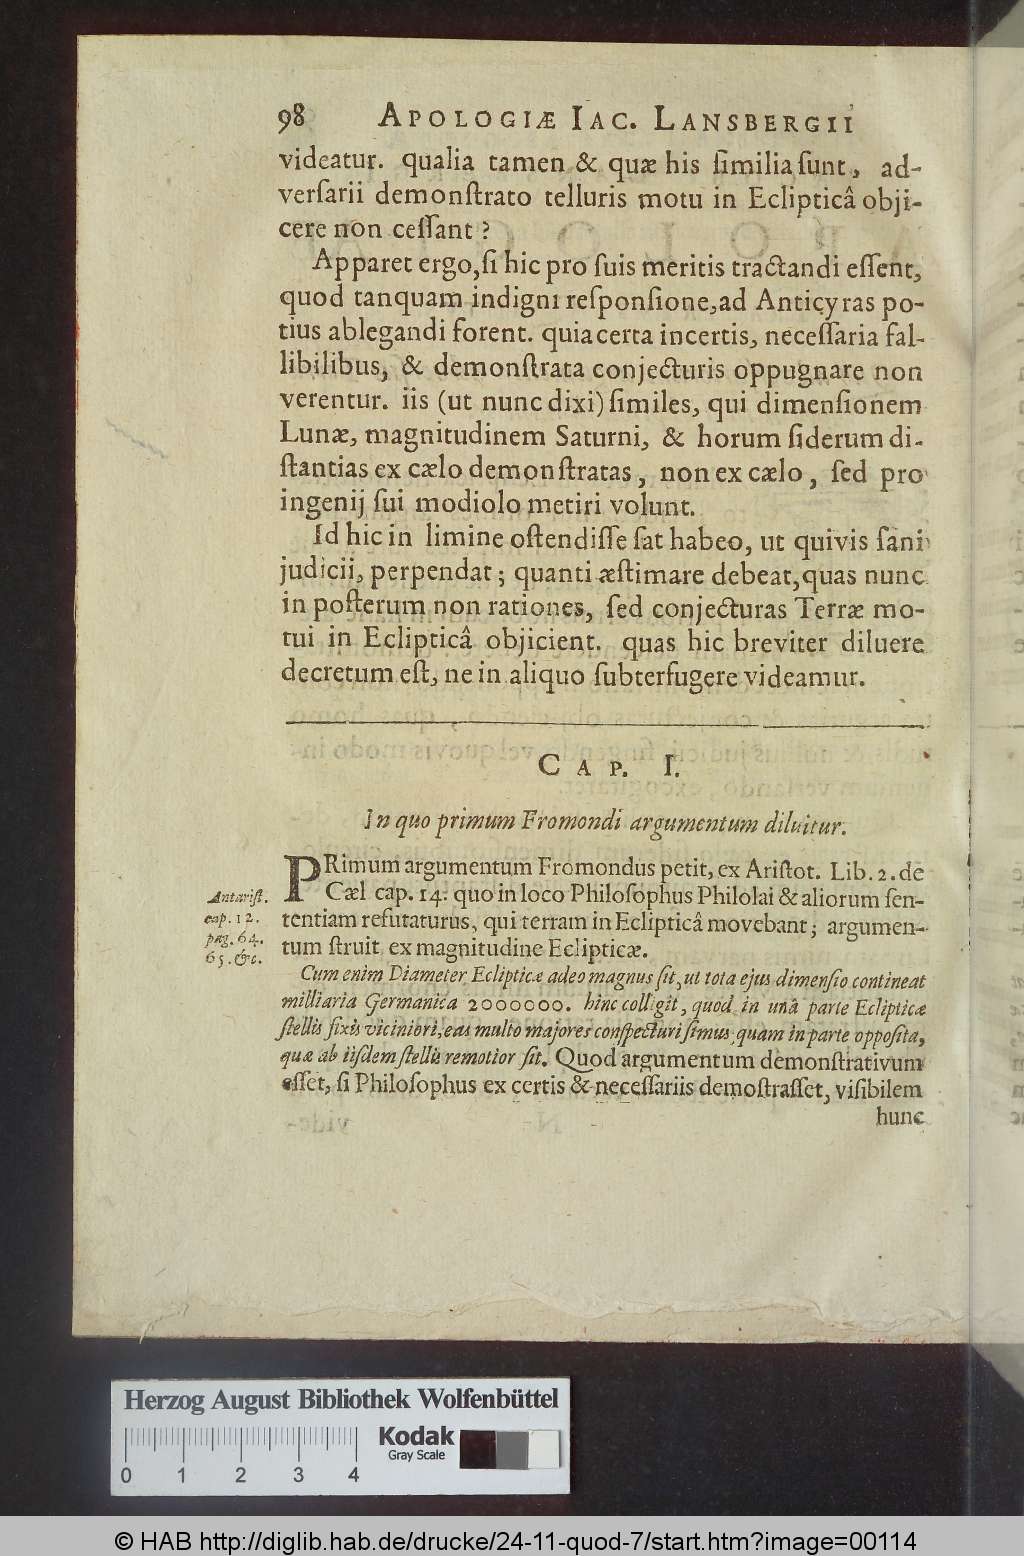 98 APOLOGIÆ IAC. LANSBERGII
videatur. qualia tamen & quæ his ſimilia ſunt, ad-
verſarii demonſtrato telluris motu in Eclipticâ obji-
cere non ceſſant?
Apparet ergo, ſi hic pro ſuis meritis tractandi eſſent,
quod tanquam indigni reſponſione, ad Anticyras po-
tius ablegandi forent. quia certa incertis, neceſſaria fal-
libilibus, & demonſtrata conjecturis oppugnare non
verentur. iis (ut nunc dixi) ſimiles, qui dimenſionem
Lunæ, magnitudinem Saturni, & horum ſiderum di-
ſtantias ex cælo demonſtratas, non ex cælo, ſed pro
ingenij ſui modiolo metiri volunt.
Id hic in limine oſtendiſſe ſat habeo, ut quivis ſani
judicii, perpendat; quanti æſtimare debeat, quas nunc
in poſterum non rationes, ſed conjecturas Terræ mo-
tui in Eclipticâ objicient. quas hic breviter diluere
decretum eſt, ne in aliquo ſubterfugere videamur.
CAP. I.
In quo primum Fromondi argumentum diluitur.
PRimum argumentum Fromondus petit, ex Ariſtot. Lib. 2. de
Cæl cap. 14: quo in loco Philoſophus Philolai & aliorum ſen-
tentiam refutaturus, qui terram in Eclipticâ movebant; argumen-
tum ſtruit ex magnitudine Eclipticæ.
Antariſt.
cap. 12.
pag. 64.
65. &c.
Cum enim Diameter Eclipticæ adeo magnus ſit, ut tota ejus dimenſio contineat
milliaria Germanica 2000000. hinc colligit, quod in unâ parte Eclipticæ
ſtellis fixis viciniori, eas multo majores conſpecturi ſimus, quam in parte oppoſita,
quæ ab iiſdem ſtellis remotior ſit. Quod argumentum demonſtrativum
eſſet, ſi Philoſophus ex certis & neceſſariis demoſtraſſet, viſibilem
hunc
Herzog August Bibliothek Wolfenbüttel
Kodak
Gray Scale
0 1 2 3 4
© HAB http://diglib.hab.de/drucke/24-11-quod-7/start.htm?image=00114